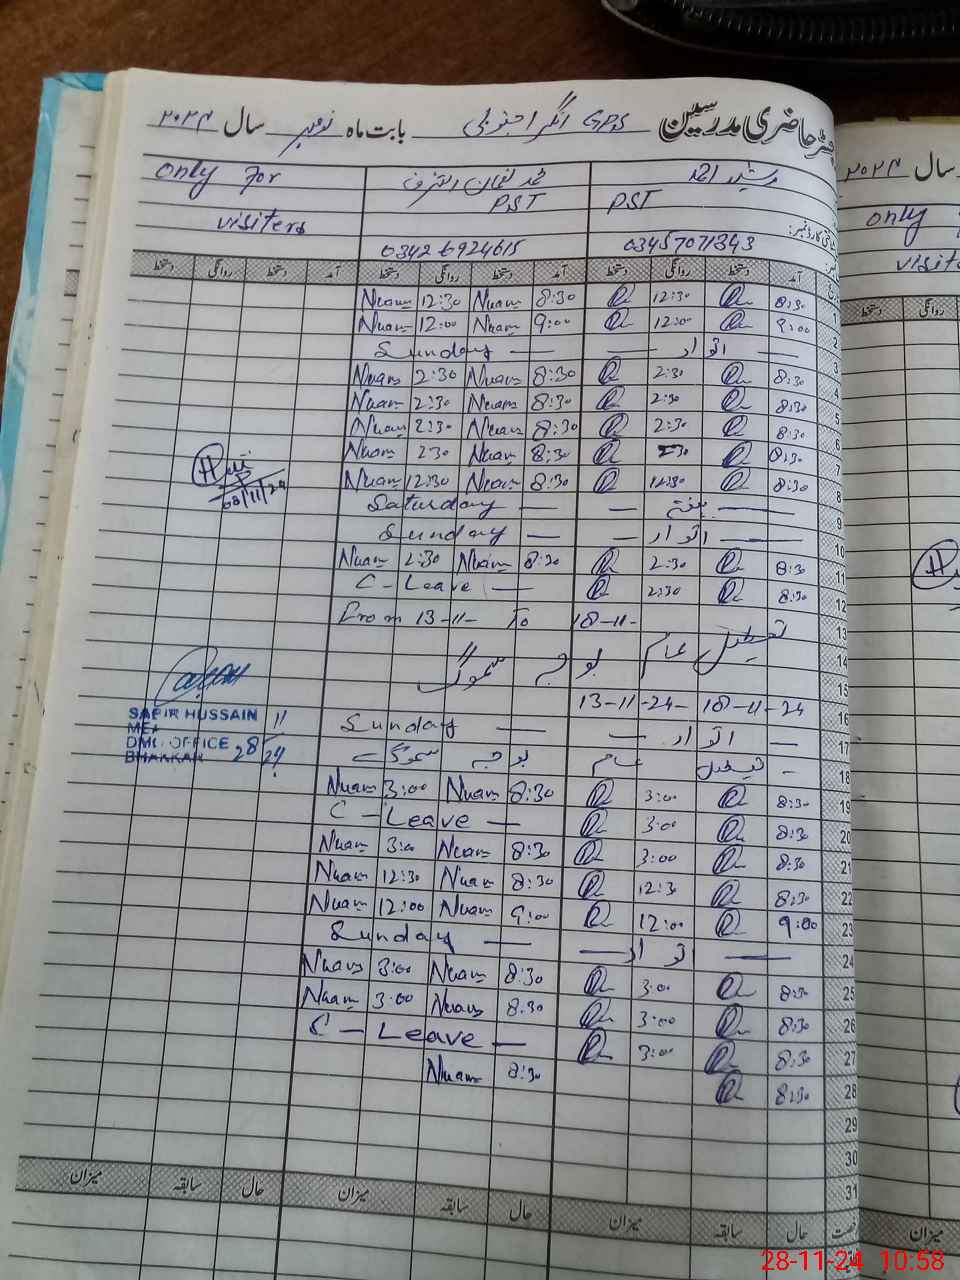 رجسٹر حاضری مدرسین GPS انگرا جنوبی بابت ماہ نومبر سال ۲۰۲۴
رشید احمد محمد نعمان اشرف only for
PST PST visiters
03457071343 0342 6924615
آمد دستخط روانگی دستخط آمد دستخط روانگی دستخط آمد دستخط روانگی دستخط
1 8:30 12:30 8:30 Nuam 12:30 Nuam
2 9:00 12:00 9:00 Nuam 12:00 Nuam
3 اتوار Sunday
4 8:30 2:30 8:30 Nuam 2:30 Nuam
5 8:30 2:30 8:30 Nuam 2:30 Nuam
6 8:30 2:30 8:30 Nuam 2:30 Nuam
7 8:30 2:30 8:30 Nuam 2:30 Nuam
8 8:30 12:30 8:30 Nuam 12:30 Nuam
9 ہفتہ Saturday
10 اتوار Sunday
11 8:30 2:30 8:30 Nuam 2:30 Nuam
12 8:30 2:30 C - Leave
13 From 13-11- To 18-11-
14 تعطیل عام بوجہ سموگ
15
16 13-11-24- 18-11-24
17 اتوار Sunday
18 تعطیل عام بوجہ سموگ
19 8:30 3:00 8:30 Nuam 3:00 Nuam
20 8:30 3:00 C - Leave
21 8:30 3:00 8:30 Nuam 3:00 Nuam
22 8:30 12:30 8:30 Nuam 12:30 Nuam
23 9:00 12:00 9:00 Nuam 12:00 Nuam
24 اتوار Sunday
25 8:30 3:00 8:30 Nuam 3:00 Nuam
26 8:30 3:00 8:30 Nuam 3:00 Nuam
27 8:30 3:00 C - Leave
28 8:30 8:30 Nuam
29
30
31
08/11/24
SAFIR HUSSAIN
MEA
DMO OFFICE
BHAKKAR
28/11/24
حال سابقہ میزان حال سابقہ میزان حال سابقہ میزان
۲۰۲۴ سال
only
visite
روانگی دستخط
میزان
28-11-24 10:58